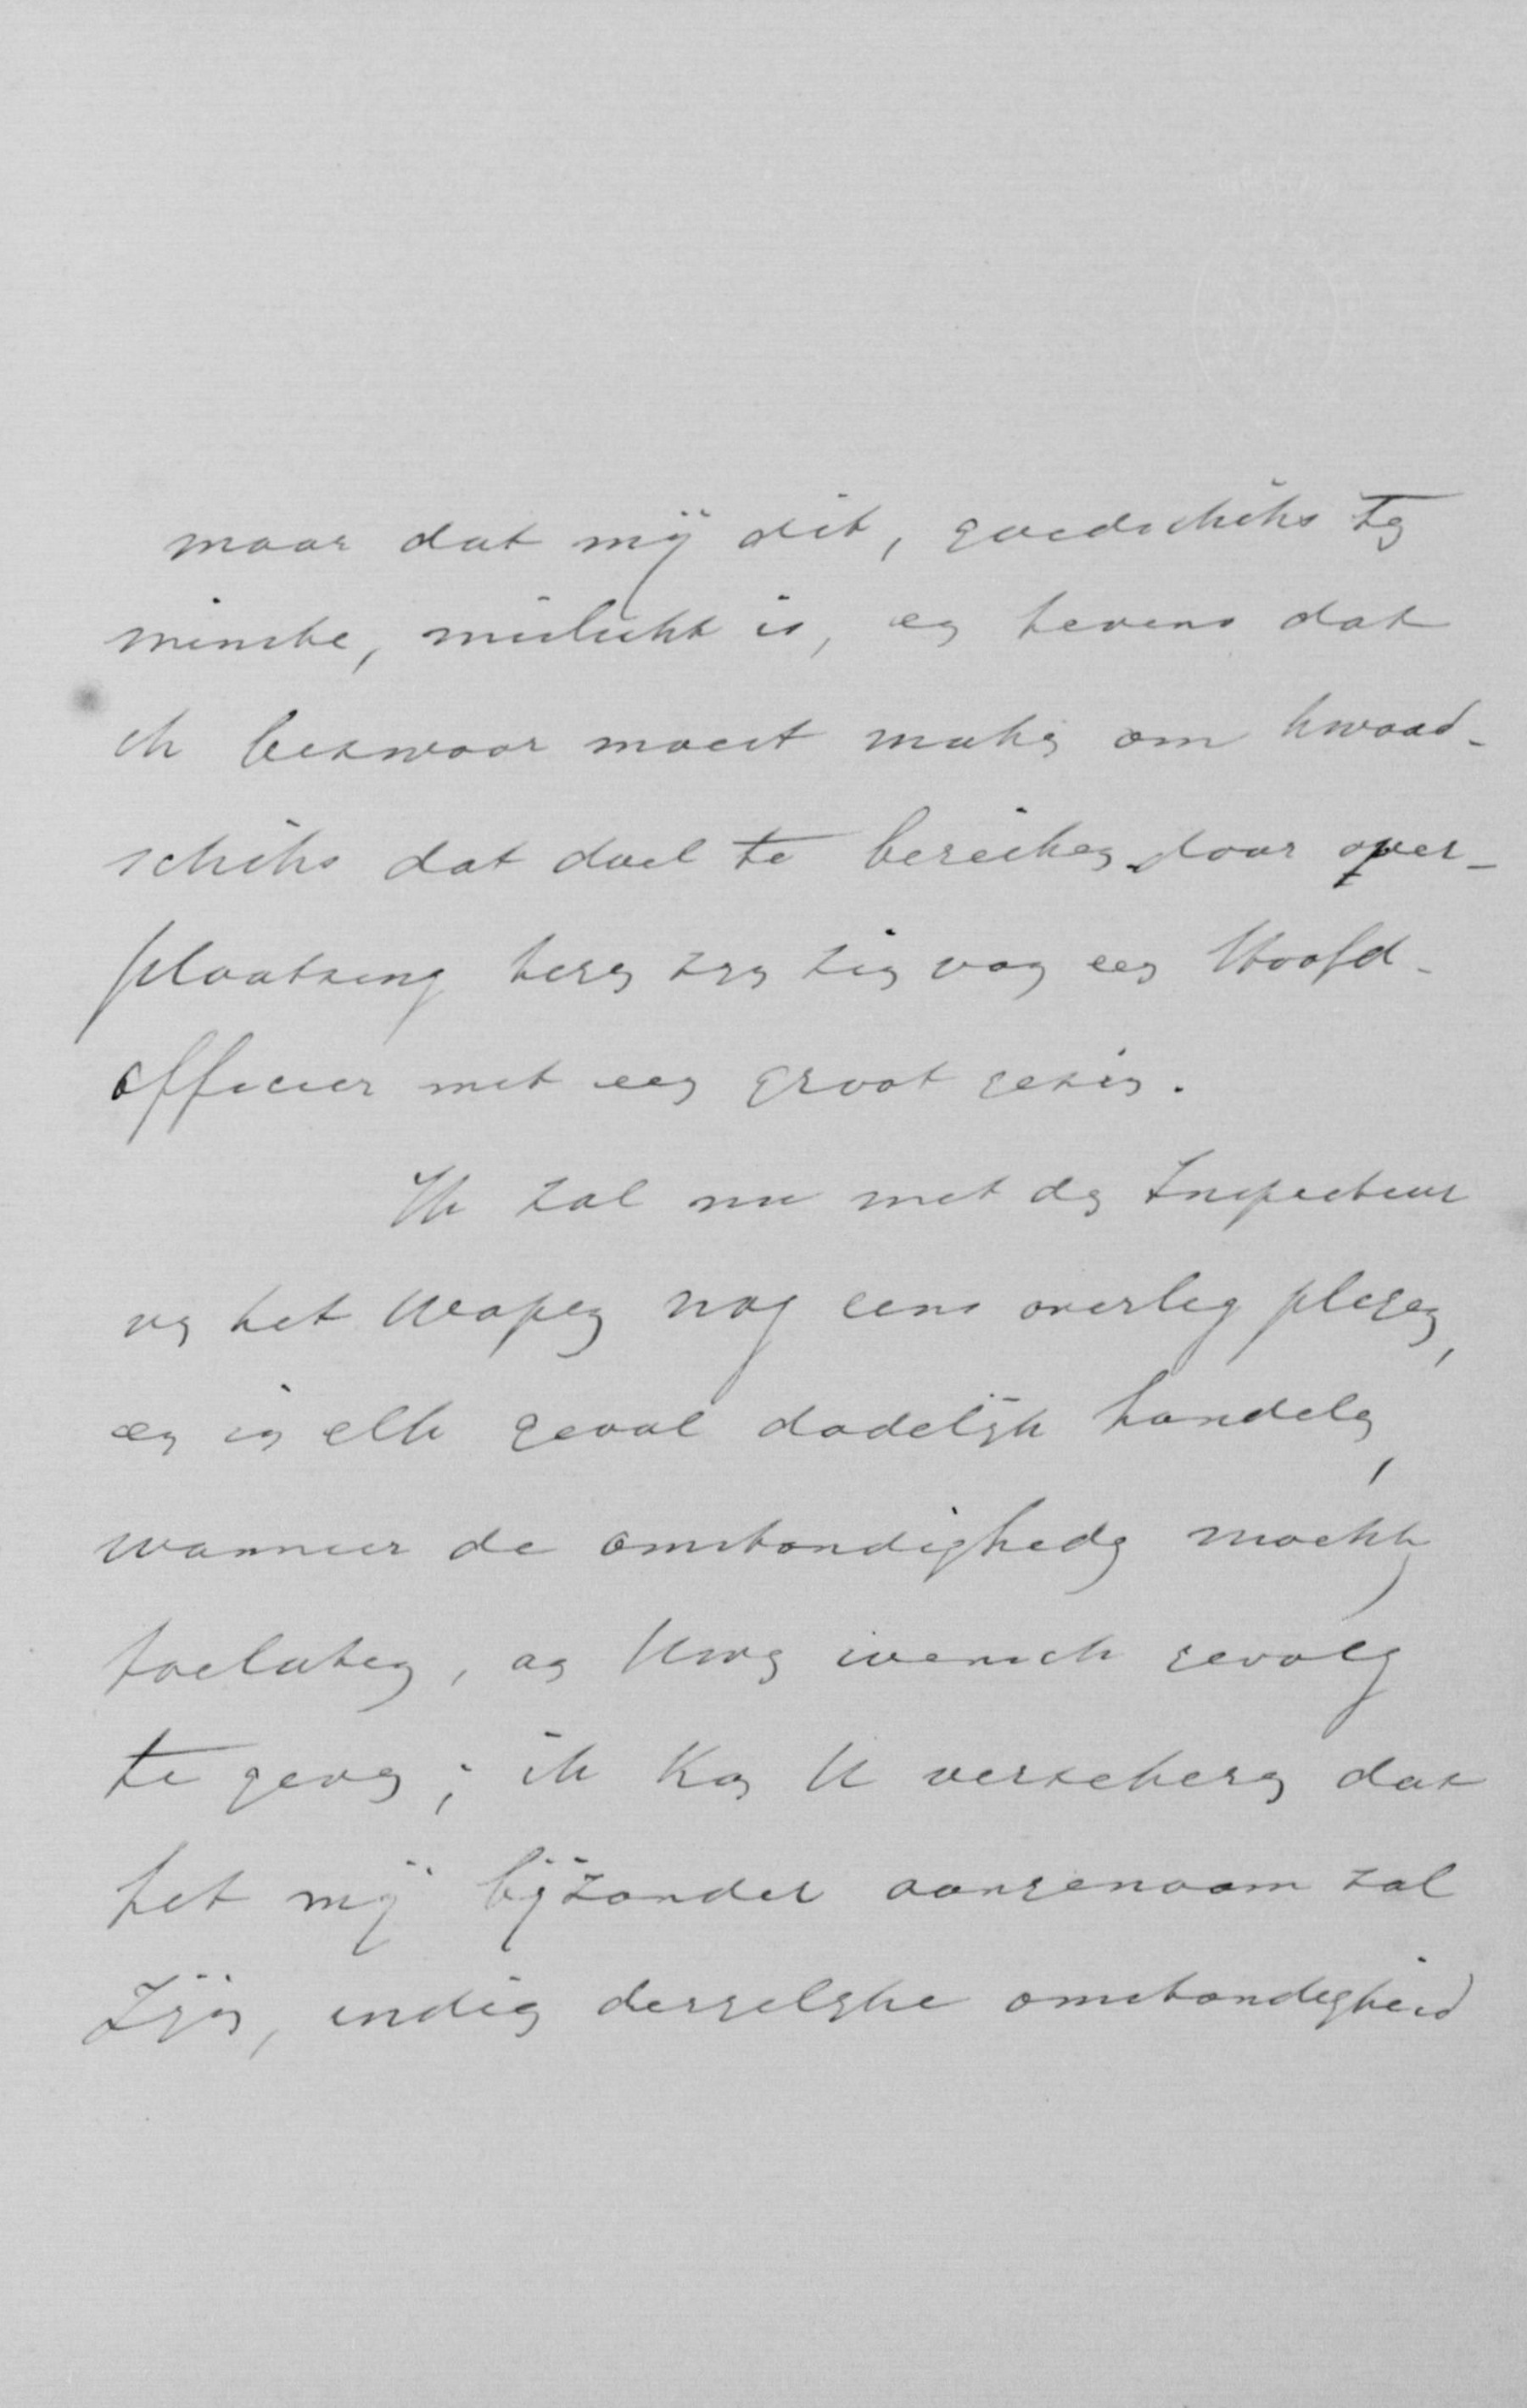 maar dat mij dit, goedschiks ten
minste, mislukt is, en tevens dat
ik bezwaar moest maken om kwaad-
schiks dat doel te bereiken door over-
plaatsing tegen zijn zin van een Hoofd-
officier met een groot gezin.
Ik zal nu met den Inspecteur
van het Wapen nog eens overleg plegen,
en in elk geval dadelijk handelen,
wanneer de omstandigheden mochten
toelaten, aan Uwen wensch gevolg
te geven; ik kan U verzekeren dat
het mij bijzonder aangenaam zal
zijn, indien dergelijke omstandigheid